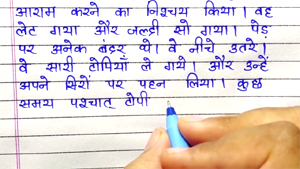 आराम करने का निश्चय किया। वह
लेट गया और जल्दी सो गया। पेड़
पर अनेक बंदर थे। वे नीचे उतरे।
वे सारी टोपियाँ ले गये। और उन्हें
अपने सिरों पर पहन लिया। कुछ
समय पश्चात् टोपी